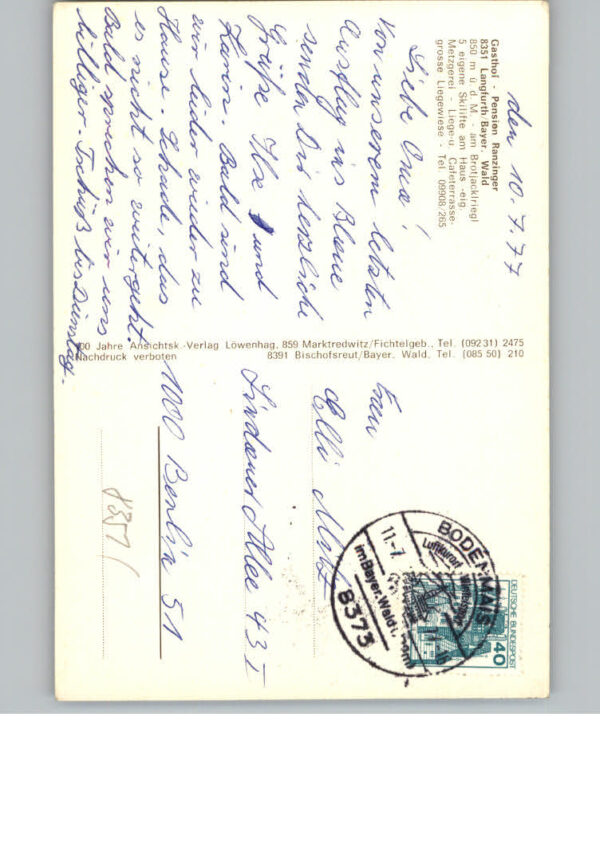 Gasthof - Pension Ranzinger
8351 Langfurth/Bayer. Wald
850 m ü. d. M. - am Brotjacklriegl
5 eigene Skilifte am Haus - eig.
Metzgerei - Liege- u. Cafeterrasse-
grosse Liegewiese - Tel. 09908/265
den 10.7.77
Liebe Oma!
Von unserem letzten
Ausflug ins Blaue
senden Dir herzliche
Grüße Ilse und
Karin. Bald sind
wir leider wieder zu
Hause. Schade, das
es nicht so weitergeht.
Bald sprechen wir uns
billiger. Tschüß bis Dienstag.
100 Jahre Ansichtsk.-Verlag Löwenhag, 859 Marktredwitz/Fichtelgeb., Tel. (09231) 2475
Nachdruck verboten 8391 Bischofsreut/Bayer. Wald, Tel. (08550) 210
Frau
Elli
Lindauer Allee 43 I
1000 Berlin 51
8351
BODENMAIS
Luftkurort
11.-7.
im Bayer. Wald
8373
DEUTSCHE BUNDESPOST
40